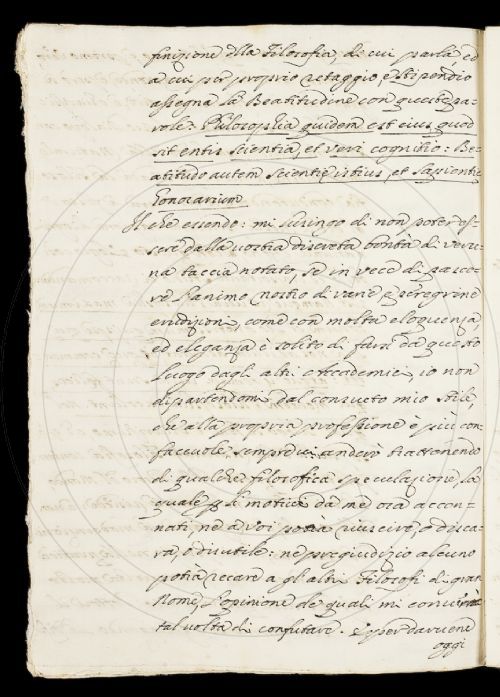 finizione della Filosofia, di cui parla, ed
a cui per proprio retaggio, e stipendio
assegna la Beatitudine con queste pa-
role: Philosophia quidem est eius quod
sit entis scientia, et veri cognitio: Be-
atitudo autem scientiæ istius, et sapientiæ
honorarium
Il che essendo: mi lusingo di non poter es-
sere dalla vostra discreta bontà di veru-
na taccia notato, se in vece di pasce-
re l'animo vostro di varie e peregrine
erudizioni, come con molta eloquenza,
ed eleganza è solito di farsi da questo
luogo dagli altri Accademici, io non
dipartendomi dal consueto mio stile,
che alla propria professione è più con-
faccuole, sempre vi anderò trattenendo
di qualche filosofica speculazione, la
quale p li motivi da me ora accen-
nati, ne a voi potrà riuscire, o discas-
ra, o disutile: ne pregiudizio alcuno
potrà recare a gli altri Filosofi di gran
Nome, l'opinione de quali mi converrà
tal volta di confutare. e per darvene
oggi